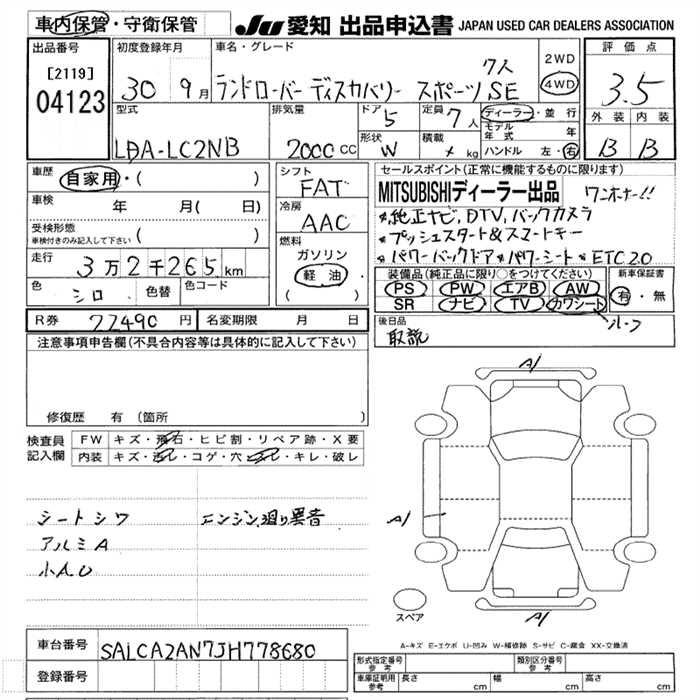 車内保管・守衛保管
JU 愛知 出品申込書 JAPAN USED CAR DEALERS ASSOCIATION
出品番号
[2119]
04123
初度登録年月
30 9月
車名・グレード
ランドローバー ディスカバリー スポーツ 7人 SE
2WD
4WD
評価点
3.5
外装 内装
B B
型式
LDA-LC2NB
排気量
2000 CC
ドア
5
形状
W
定員
7人
積載
kg
ディーラー・並行
モデル年式 年
ハンドル 左・右
車歴
自家用・( )
車検
年 月( 日)
受検形態
車検付きのみ記入して下さい ( )
走行
3万2千265km
色
シロ
色替
色コード
シフト
FAT
冷房
AAC
燃料
ガソリン
軽油
( )
セールスポイント(正常に機能するものに限ります)
MITSUBISHIディーラー出品 ワンオーナー!!
*純正ナビ,DTV,バックカメラ
*プッシュスタート&スマートキー
*パワーバックドア *パワーシート *ETC20
装備品(純正品に限り○をつけてください)
PS PW エアB AW
SR ナビ TV カワシート
ルーフ
新車保証書
有・無
R券 22490円
名変期限 月 日
後日品
取説
注意事項申告欄(不具合内容等は具体的に記入して下さい)
修復歴 有(箇所
検査員記入欄
FW キズ・飛石・ヒビ割・リペア跡・X要
内装 キズ・汚レ・コゲ・穴・スレ・キレ・破レ
シートシワ
アルミA
小AU
エンジン廻り異音
A1
A1
A1
スペア
A-キズ E-エクボ U-凹み W-補修跡 S-サビ C-腐食 XX-交換済
車台番号
SALCA2AN7JH778680
登録番号
形式指定番号 参考
類別区分番号 参考
車庫証明用 参考
長さ cm
幅 cm
高さ cm